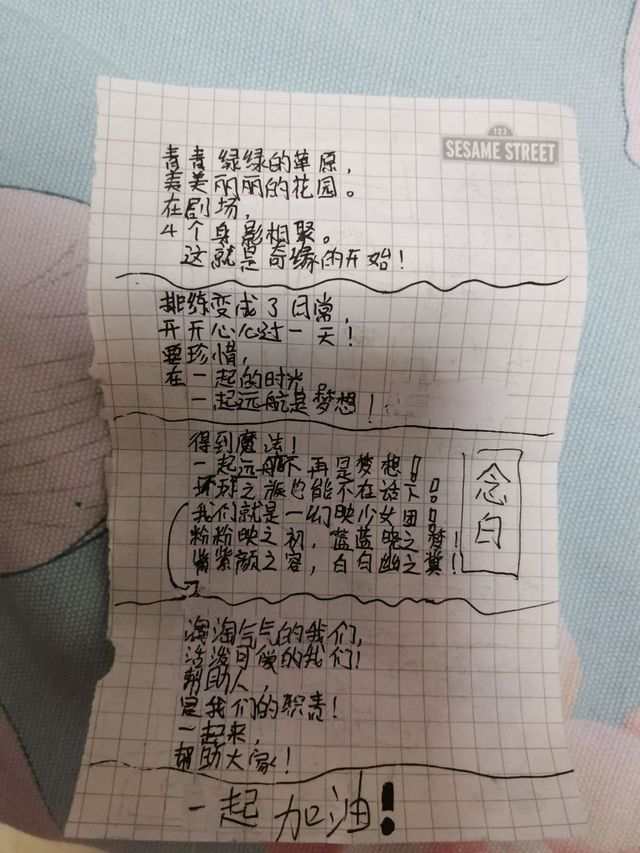 123
SESAME STREET
青青绿绿的草原，
美美丽丽的花园。
在剧场，
4个身影相聚。
这就是奇缘的开始！
排练变成了日常，
开开心心过一天！
要珍惜，
在一起的时光
一起远航是梦想！
得到魔法！
一起远航不再是梦想！
环球之旅也能不在话下！
我们就是一幻映少女团！
粉粉映之初，蓝蓝晓之梦！
紫紫颜之容，白白幽之冀！
念白
淘淘气气的我们，
活泼可爱的我们！
帮助人，
是我们的职责！
一起来，
帮助大家！
一起加油！